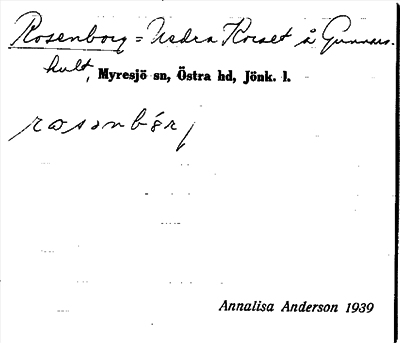 Rosenborg = Nedra Korset å Gunnars-
hult, Myresjö sn, Östra hd, Jönk. l.
rosənbȯrj
Annalisa Anderson 1939